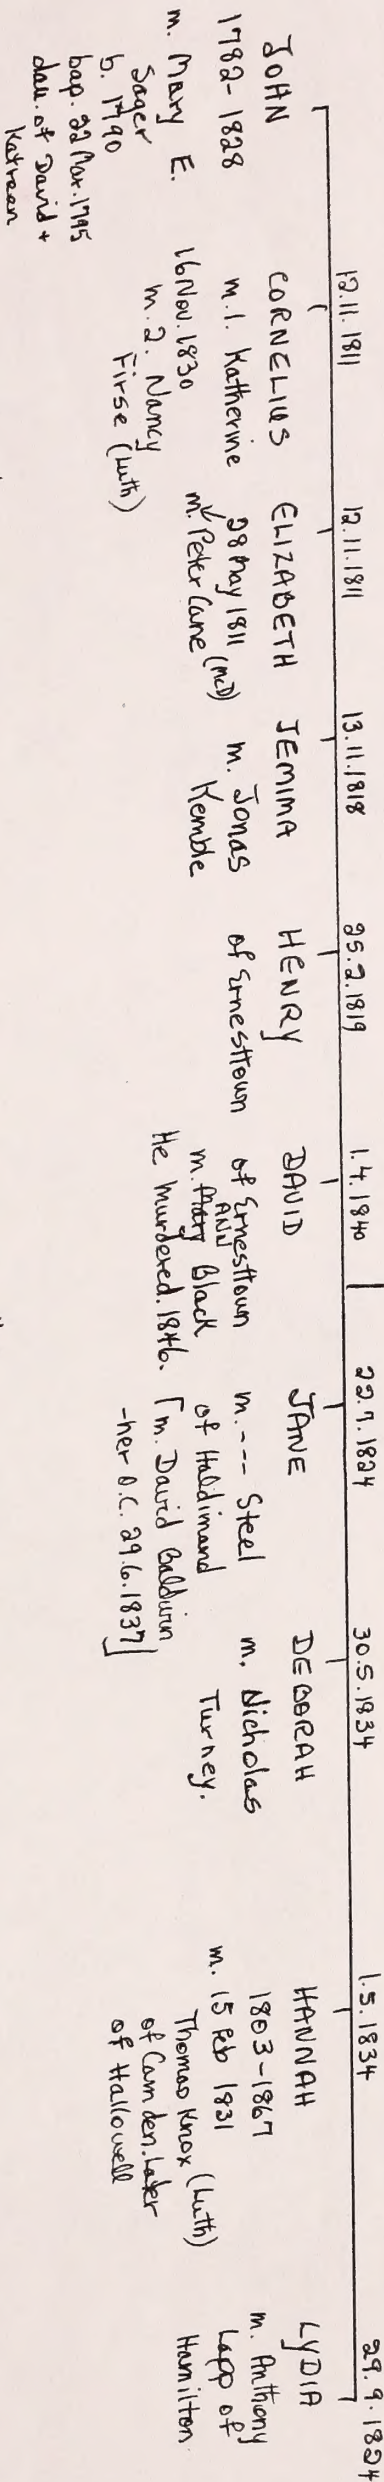 JOHN
1782-1828
m. Mary E.
Sager
b. 1790
bap. 22 Mar. 1795
dau. of David +
Katreen
12.11.1811
CORNELIUS
m.1. Katherine
16 Nov. 1830
m. 2. Nancy
Firse (Luth)
12.11.1811
ELIZABETH
28 May 1811 (McD)
m. Peter Cane
13.11.1818
JEMIMA
m. Jonas
Kemble
25.2.1819
HENRY
of Ernesttown
1.4.1840
DAVID
of Ernesttown
ANN
m. Mary Black
He murdered. 1846.
22.7.1824
JANE
m. --- Steel
of Haldimand
[m. David Baldwin
-her O.C. 29.6.1837]
30.5.1834
DEBORAH
m. Nicholas
Turney.
1.5.1834
HANNAH
1803-1867
m. 15 Feb 1831
Thomas Knox (Luth)
of Camden. Later
of Hallowell
29.9.1824
LYDIA
m. Anthony
Lapp of
Hamilton